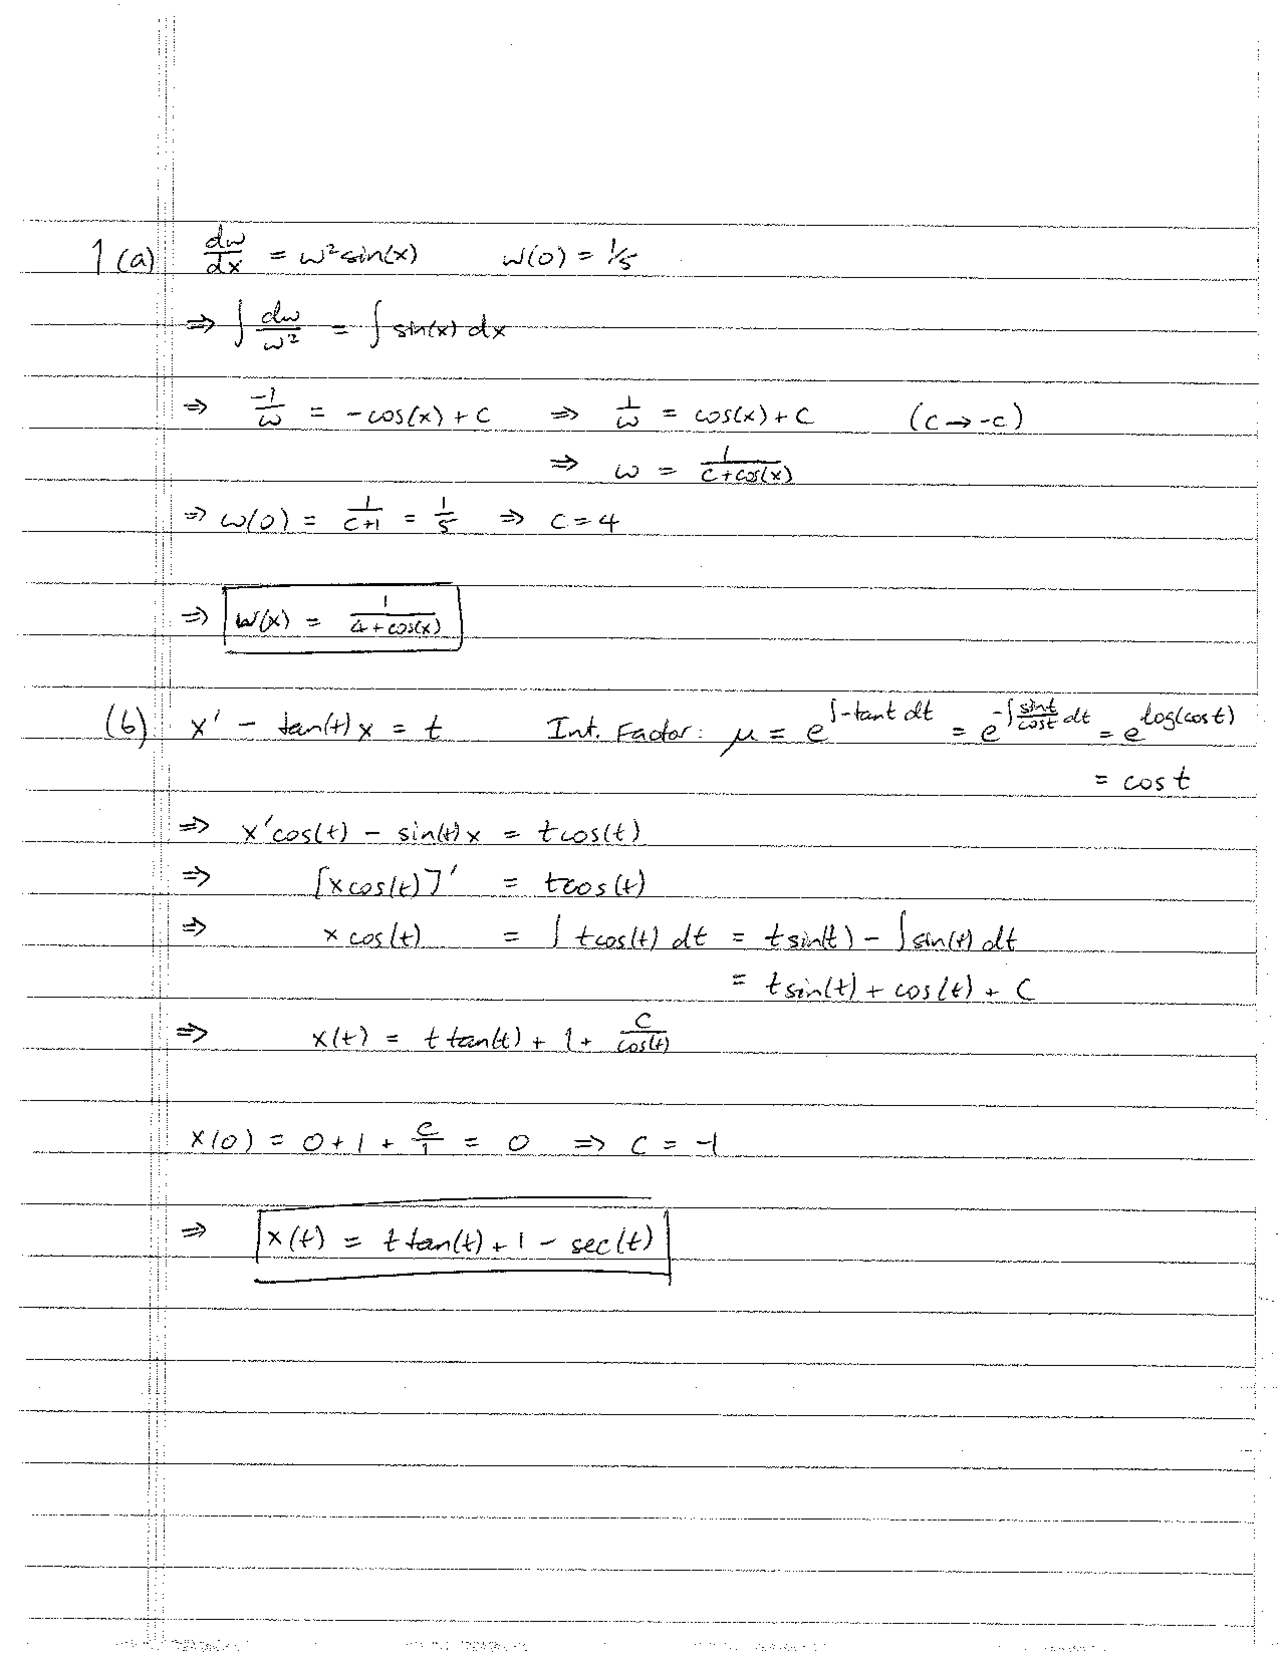 1 (a) dw/dx = w² sin(x) w(0) = 1/5
⇒ ∫ dw/w² = ∫ sin(x) dx
⇒ -1/w = -cos(x) + C ⇒ 1/w = cos(x) + C (C → -C)
⇒ w = 1/(C + cos(x))
⇒ w(0) = 1/(C+1) = 1/5 ⇒ C = 4
⇒ w(x) = 1/(4 + cos(x))
(b) x' - tan(t) x = t Int. Factor: μ = e^(∫-tant dt) = e^(-∫ sint/cost dt) = e^(log(cost))
= cos t
⇒ x'cos(t) - sin(t) x = t cos(t)
⇒ [x cos(t)]' = t cos(t)
⇒ x cos(t) = ∫ t cos(t) dt = t sin(t) - ∫ sin(t) dt
= t sin(t) + cos(t) + C
⇒ x(t) = t tan(t) + 1 + C/cos(t)
x(0) = 0 + 1 + C/1 = 0 ⇒ C = -1
⇒ x(t) = t tan(t) + 1 - sec(t)